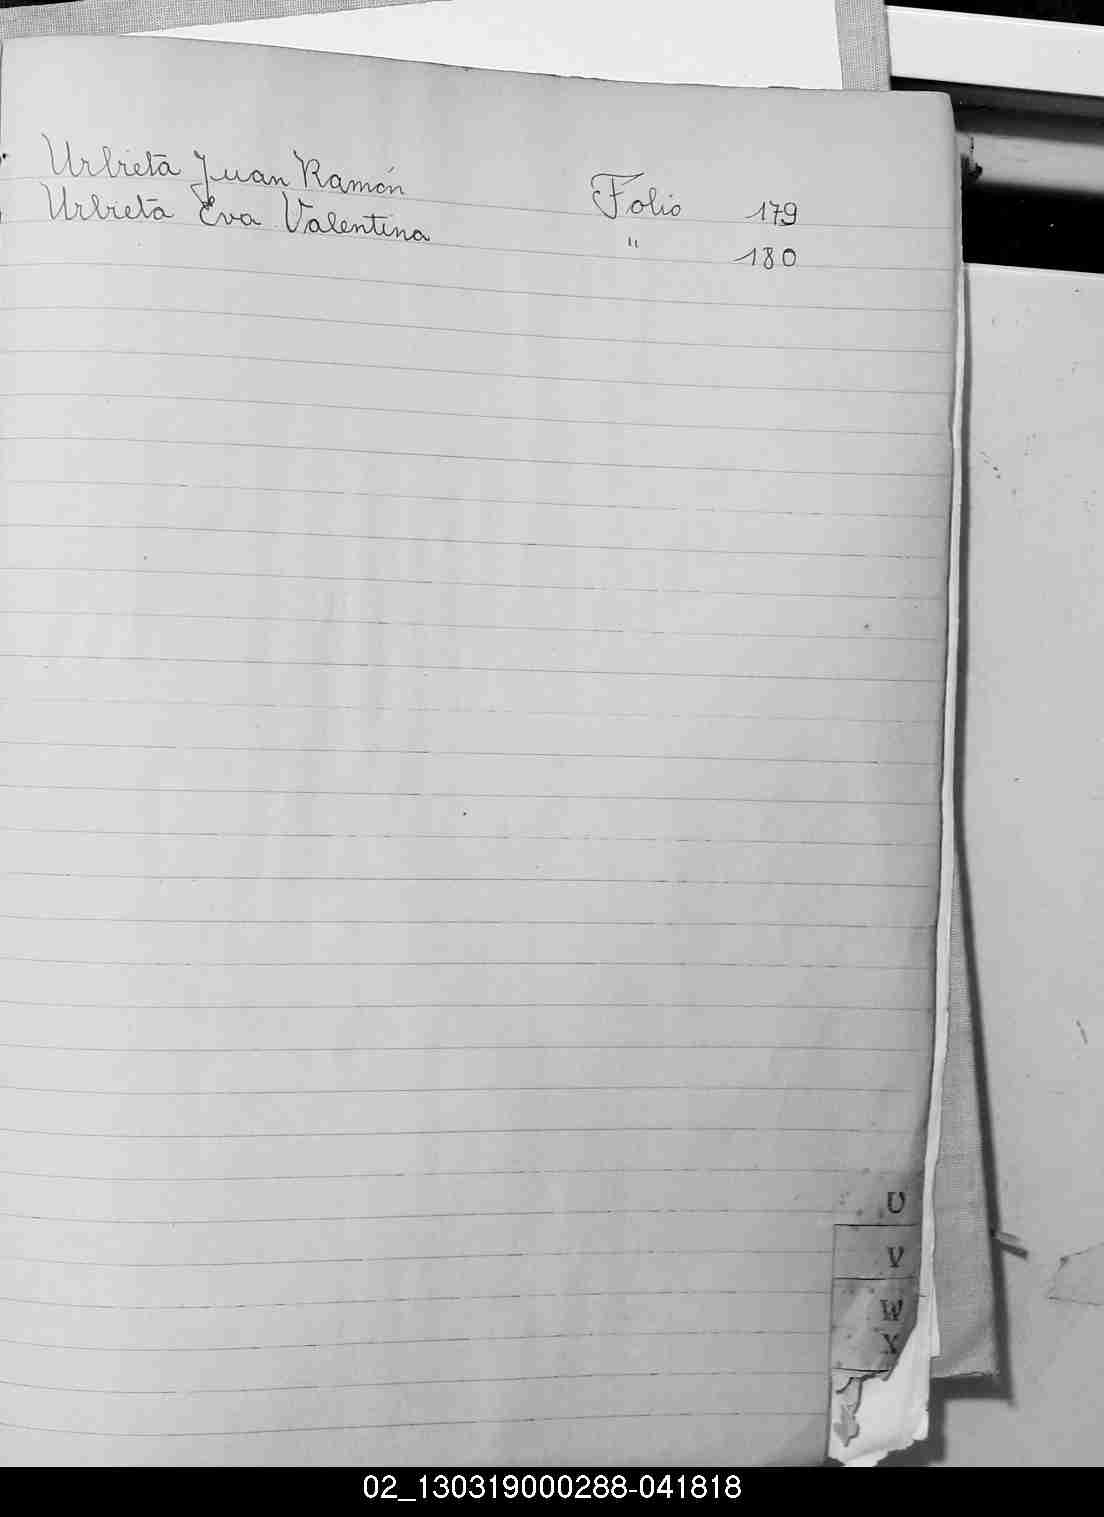 Urbieta Juan Ramón Folio 179
Urbieta Eva Valentina " 180
U
V
W
X
02_130319000288-041818